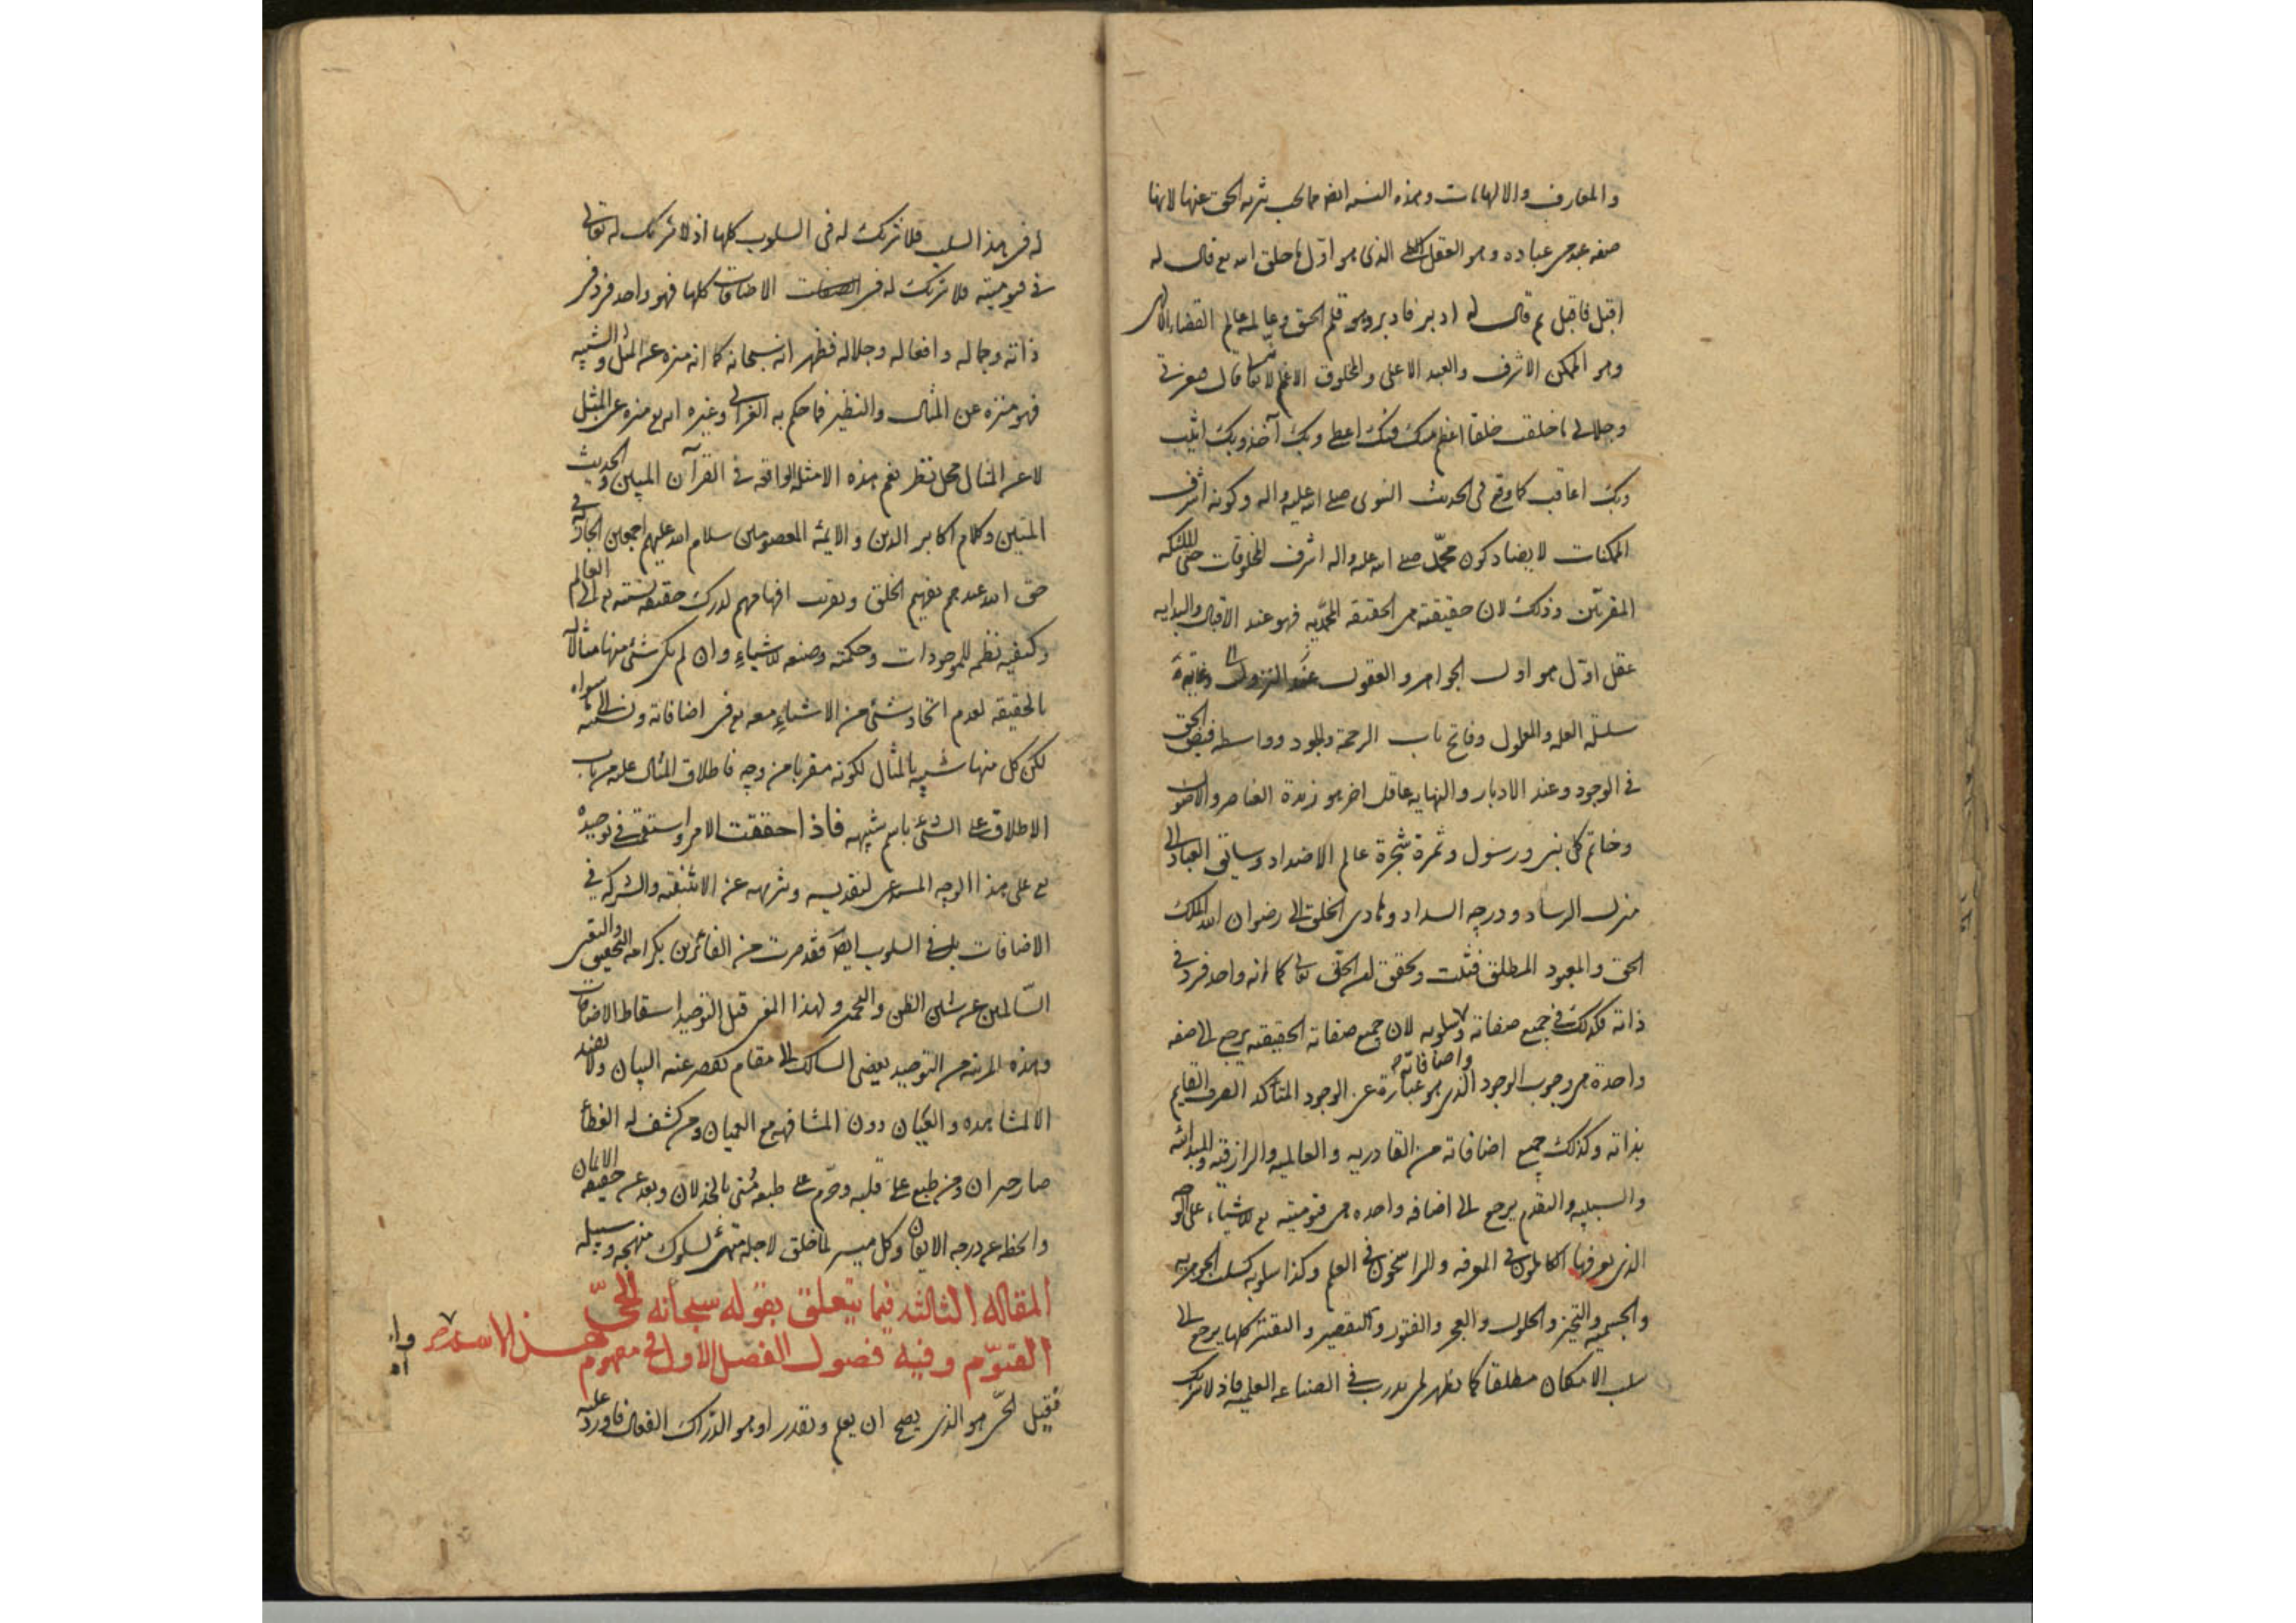 والمعارف والالهامات وهذه النسبه ايضا مما يجب تنزيه الحق عنها لانها
صفه عبد من عباده وهو العقل الكلى الذى هو اول ما خلق الله تع قال له
اقبل فاقبل ثم قال له ادبر فادبر وهو قلم الحق وعالمه عالم القضاء الالهى
وهو الممكن الاشرف والعبد الاعلى والمخلوق الاعظم لانه تعا قال فبعزتى
وجلالى ما خلقت خلقا اعظم منك فبك اعطى وبك آخذ وبك اثيب
وبك اعاقب كما وقع فى الحديث النبوى صلى الله عليه واله وكونه اشرف
الممكنات لا يضاد كون محمّد صلى الله عليه واله اشرف المخلوقات حتى الملئكه
المقربين وذلك لان حقيقته هى الحقيقه المحمّديه فهو عند الاقبال والبدايه
عقل اوّل هو اول الجواهر والعقول عند النزول وغايه
سلسلة العله والمعلول وفاتح باب الرحمة والجود وواسطه فيض الحق
فى الوجود وعند الادبار والنهايه عاقل اخر هو زبدة العناصر والاصول
وخاتم كل نبى ورسول وثمرة شجرة عالم الاضداد وسايق العباد الى
منزل الرشاد ودرجه السداد وهادى الخلق الى رضوان الله الملك
الحق والمعبود المطلق فثبت وتحقق ان الحق تعالى كما انه واحد فرد فى
ذاته فكذلك فى جميع صفاته وسلوبه لان جميع صفاته الحقيقيه يرجع الى صفه
واضافاته
واحدة هى وجوب الوجود الذى هو عبارة عن الوجود المتاكد الصرف القايم
بذاته وكذلك جميع اضافاته من القادريه والعالميه والرازقيه والمبدائيه
والسببيه والتقدم يرجع الى اضافه واحده هى قيوميته تع للاشياء على الوجه
الذى يعرفها الكاملون فى المعرفه والراسخون فى العلم وكذا سلوبه كسلب الجوهريه
والجسميه والتحيز والحلول والعجز والفتور والتقصير والتقتير كلها يرجع الى
سلب الامكان مطلقا كما يظهر لمن تدرب فى الصناعه العلميه فاذ لا شريك
له فى هذا السلب فلا شريك له فى السلوب كلها اذ لا شريك له تعالى
فى قيوميته فلا شريك له فى الاضافات كلها فهو واحد فرد فى
ذاته وجماله وافعاله وجلاله فظهر انه سبحانه كما انه منزه عن المثل والشبيه
فهو منزه عن المثال والنظير فما حكم به الغزالى وغيره انه تع منزه عن المثل
لا عن المثال محل نظر نعم هذه الامثله الواقعه فى القرآن المبين والحديث
المتين وكلام اكابر الدين والايمه المعصومين سلام الله عليهم اجمعين فى
حق الله عند هم تفهيم الخلق وتقريب افهامهم لدرك حقيقه نسبته تع الى العالم
وكيفيه نظمه للموجودات وحكمته وصنعه للاشياء وان لم يكن شئ منها مثالا له
بالحقيقه لعدم اتحاد شئ من الاشياء معه تع فى اضافاته ونسبته الى ما سواه
لكن كل منها شبيه بالمثال لكونه مقربا من وجه فاطلاق المثال عليه من باب
الاطلاق على الشئ باسم شبيهه فاذا حققت الامر واستقمت فى توحيده
تع على هذا الوجه المستدعى لتقديسه وتنزيهه عن الاثنينيه والشركه فى
الاضافات بل فى السلوب ايضا فقد صرت من الفائزين بكرامه التحقيق والتقى
السّالمين عن شين الظن ولهذا المعنى قيل التوحيد اسقاط الاضافات
وهذه المرتبه من التوحيد يفضى السالك الى مقام يقصر عنه البيان ولا يفيد
الا المشاهده والعيان دون المشافهه مع العميان ومن كشف له الغطاء
صار حيران ومن طبع على قلبه وختم على طبعه مُنى بالخذلان وبعد عن حقيقه الايمان
وانحط عن درجه الايقان وكل ميسر لما خلق لاجله متهئ لسلوك منهجه وسبيله
المقاله الثالثه فيما يتعلق بقوله سبحانه الحىّ
القيّوم وفيه فصول الفصل الاول فى مفهوم
هذا الاسم
فقيل الحىّ هو الذى يصح ان يعلم ويقدر او هو الدّراك الفعال فاورد عليه